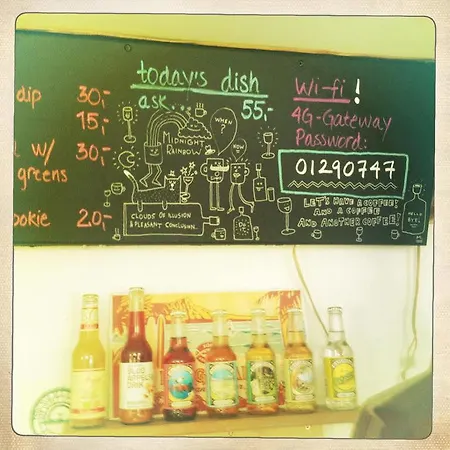 dip 30,-
15,-
w/ 30,-
greens
ookie 20,-
today's dish
ask... 55,-
WHEN?
NOW
MIDNIGHT
RAINBOW
CLOUDS OF ILLUSION
& PLEASANT CONCLUSION.
Wi-fi!
4G-Gateway
Password:
01290747
LET'S HAVE A COFFEE!
AND A COFFEE
AND ANOTHER COFFEE!